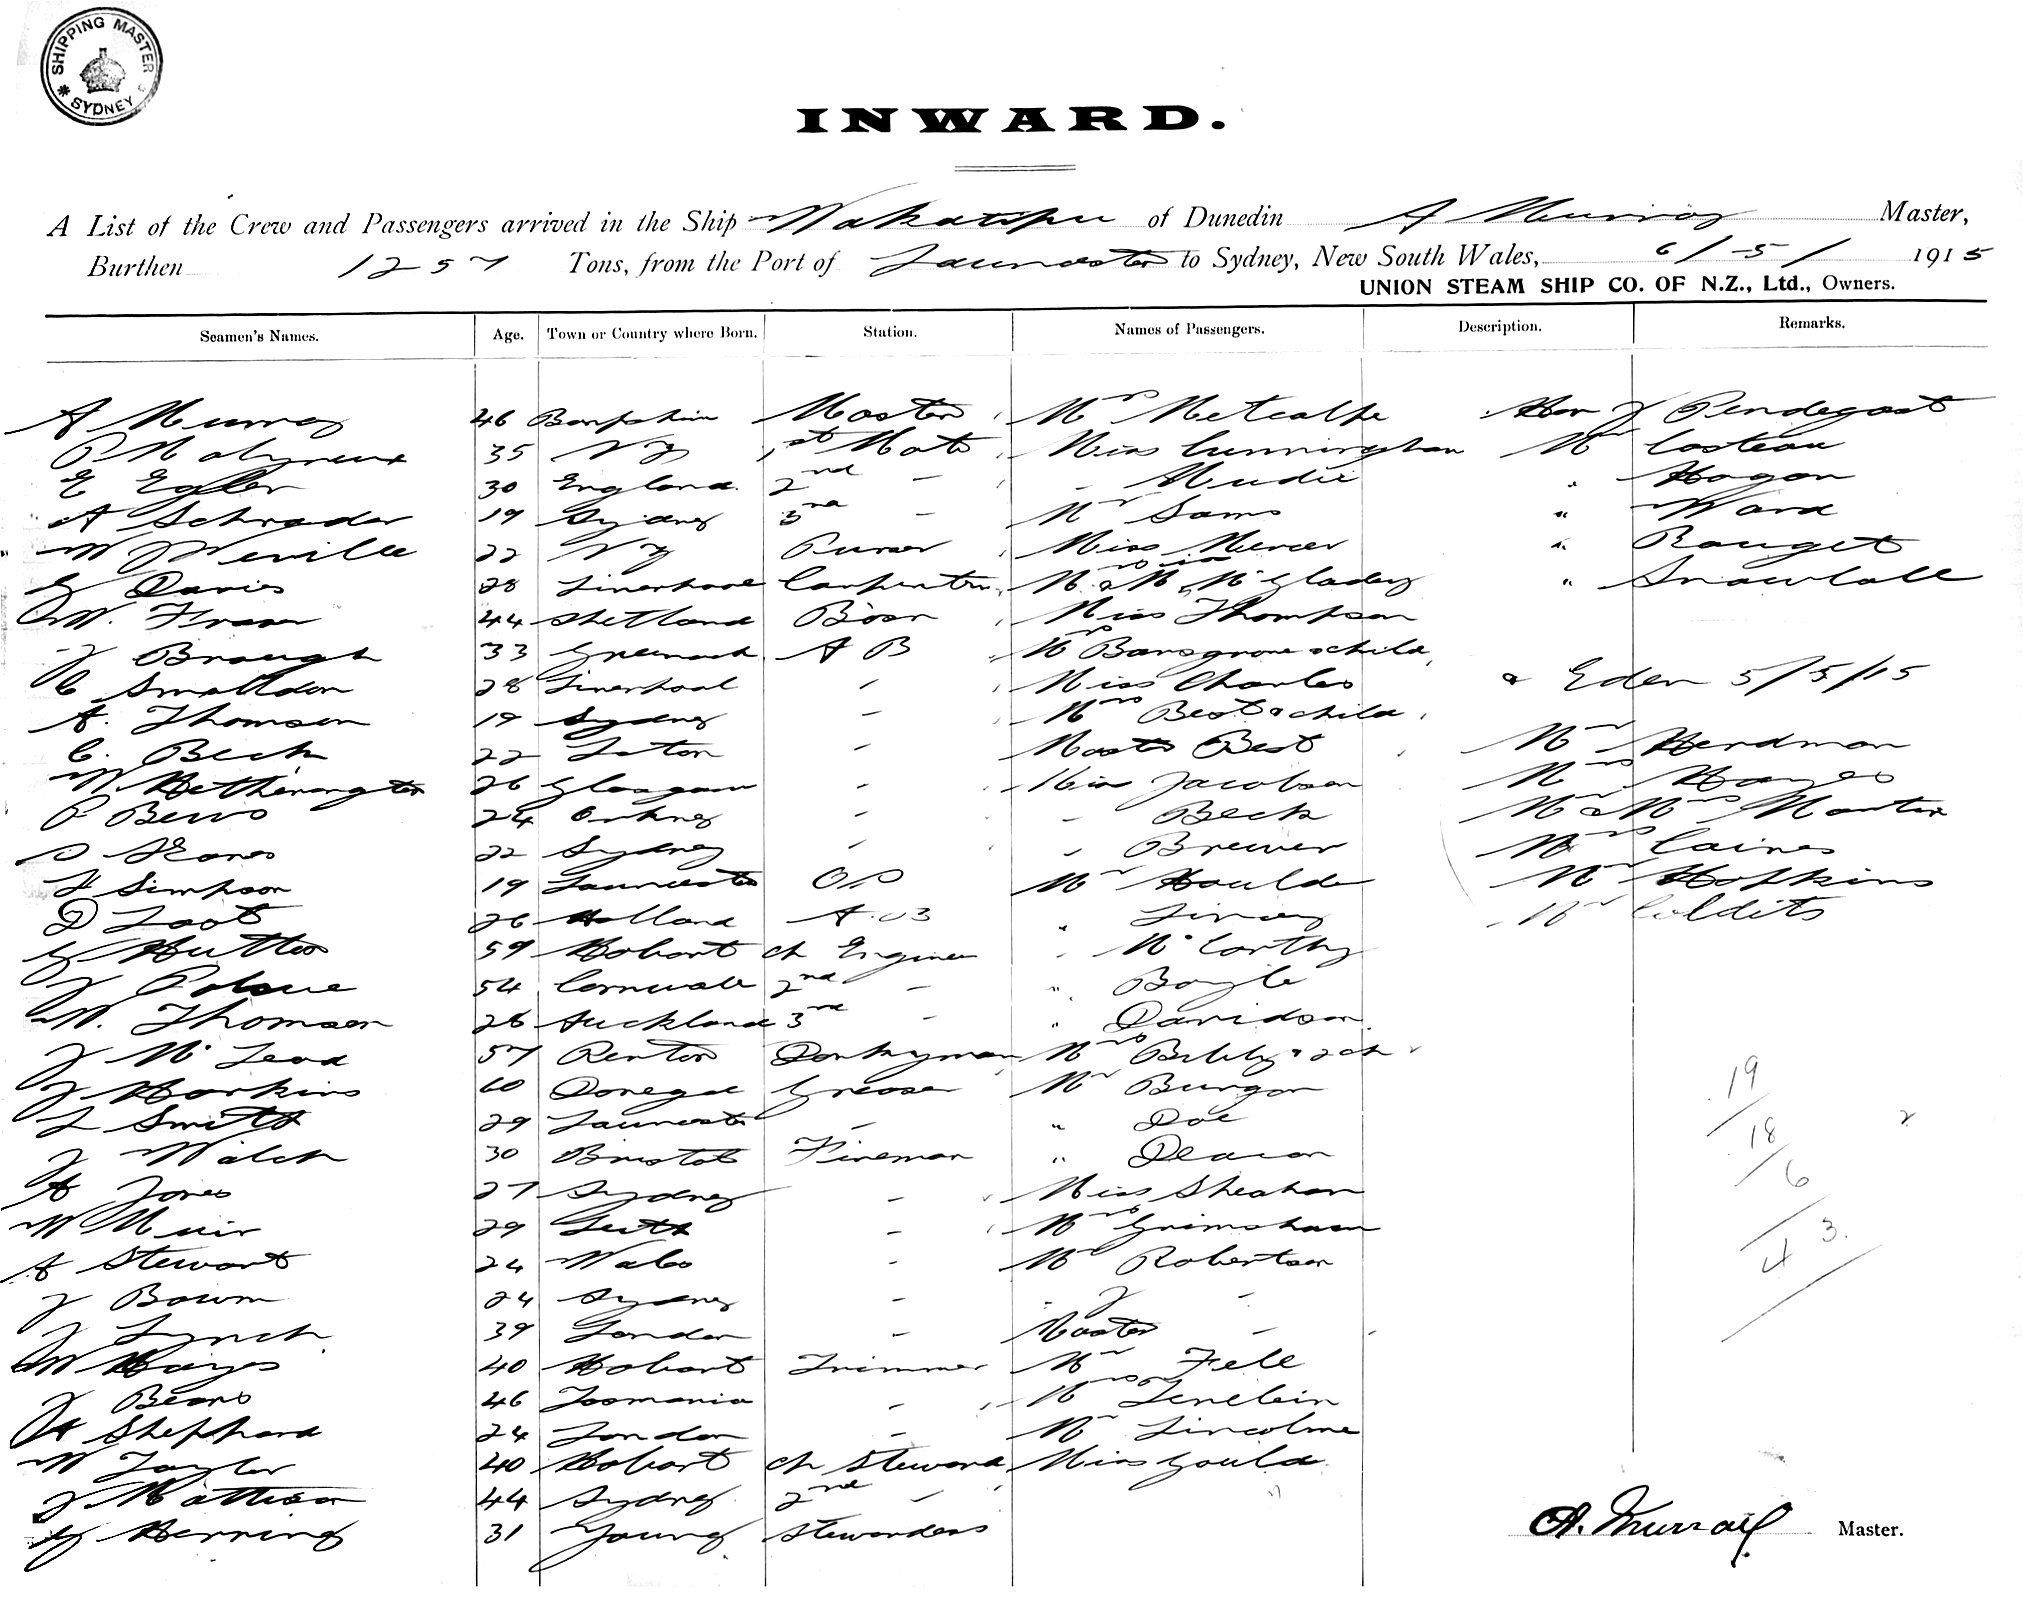 SHIPPING MASTER
SYDNEY
INWARD.
A List of the Crew and Passengers arrived in the Ship Wakatipu of Dunedin A Murray Master,
Burthen 1257 Tons, from the Port of Launceston to Sydney, New South Wales, 6/5/1915
UNION STEAM SHIP CO. OF N.Z., Ltd., Owners.
Seamen's Names. Age. Town or Country where Born. Station. Names of Passengers. Description. Remarks.
A Murray 46 Master Mrs Metcalfe Hon J Pendegast
P Molyneux 35 NZ 1st Mate Miss Cunningham Mr
E Egler 30 England 2nd - - Mudie " Hogan
A Schrader 19 Sydney 3rd - Mr Sams " Ward
W Neville 22 NZ Purser Miss Mercer " Rouget
G Davies 28 Liverpool Carpenter Mr & Mrs " Snowball
W. Fraser 44 Shetland Bosn Miss Thompson
J Brough 33 Greenock A B Mrs & child
C Smalldon 28 Liverpool " Miss Charles & Eden 5/5/15
A. Thomson 19 Sydney - Mrs Best & child
C. Beck 22 - Master Best Mr Herdman
W Hetherington 26 Glasgow - Miss Jacobson Mrs Hayes
P Bews 24 Orkney - - Beck Mr & Mrs Martin
22 Sydney - - Brewer Mrs Caines
H Simpson 19 Launceston OS Mr Houlde Mr Hopkins
D Loot 26 Holland A.B " Mr
G Hutton 59 Hobart ch Engineer " McCarthy
J Polsue 54 Cornwall 2nd - " Boyle
W. Thomson 26 Auckland 3rd - " Davidson
J McLeod 57 Renton Donkeyman Mrs & 2 ch
J Harkins 60 Donegal Greaser Mr Burgon
L Smith 29 Launceston - " Doe
J Walch 30 Bristol Fireman " Deacon
A Jones 27 Sydney - Miss Sheahan
W Muir 29 Leith - Mrs Grimshaw
A Stewart 24 Wales - Mr Robertson
J Bown 24 Sydney - " J -
J Lynch 39 London - Master -
W Hayes 40 Hobart Trimmer Mr Fell
J Bears 46 Tasmania - Mrs
H Sheppard 24 London - Mr Lincolne
W Taylor 40 Hobart ch Steward Miss Gould
J Mattison 44 Sydney 2nd -
G Herring 31 Young Stewardess
19
18
6
3
4
A. Murray Master.